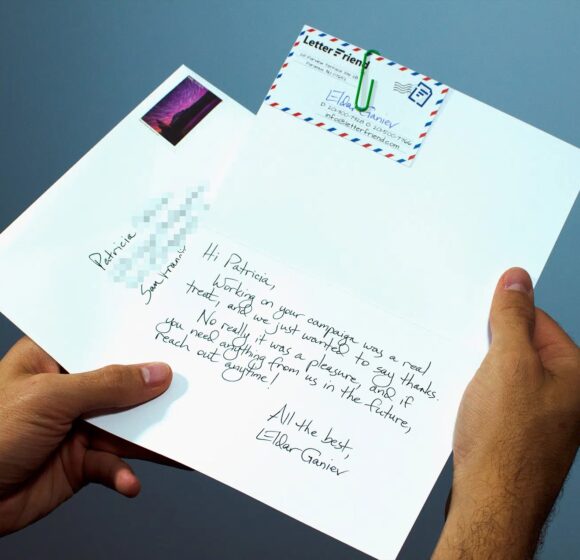 LetterFriend
Eldar Ganiev
info@letterfriend.com
Patricia
San Franci
Hi Patricia,
Working on your campaign was a real
treat, and we just wanted to say thanks.
No really it was a pleasure, and if
you need anything from us in the future,
reach out anytime!
All the best,
Eldar Ganiev